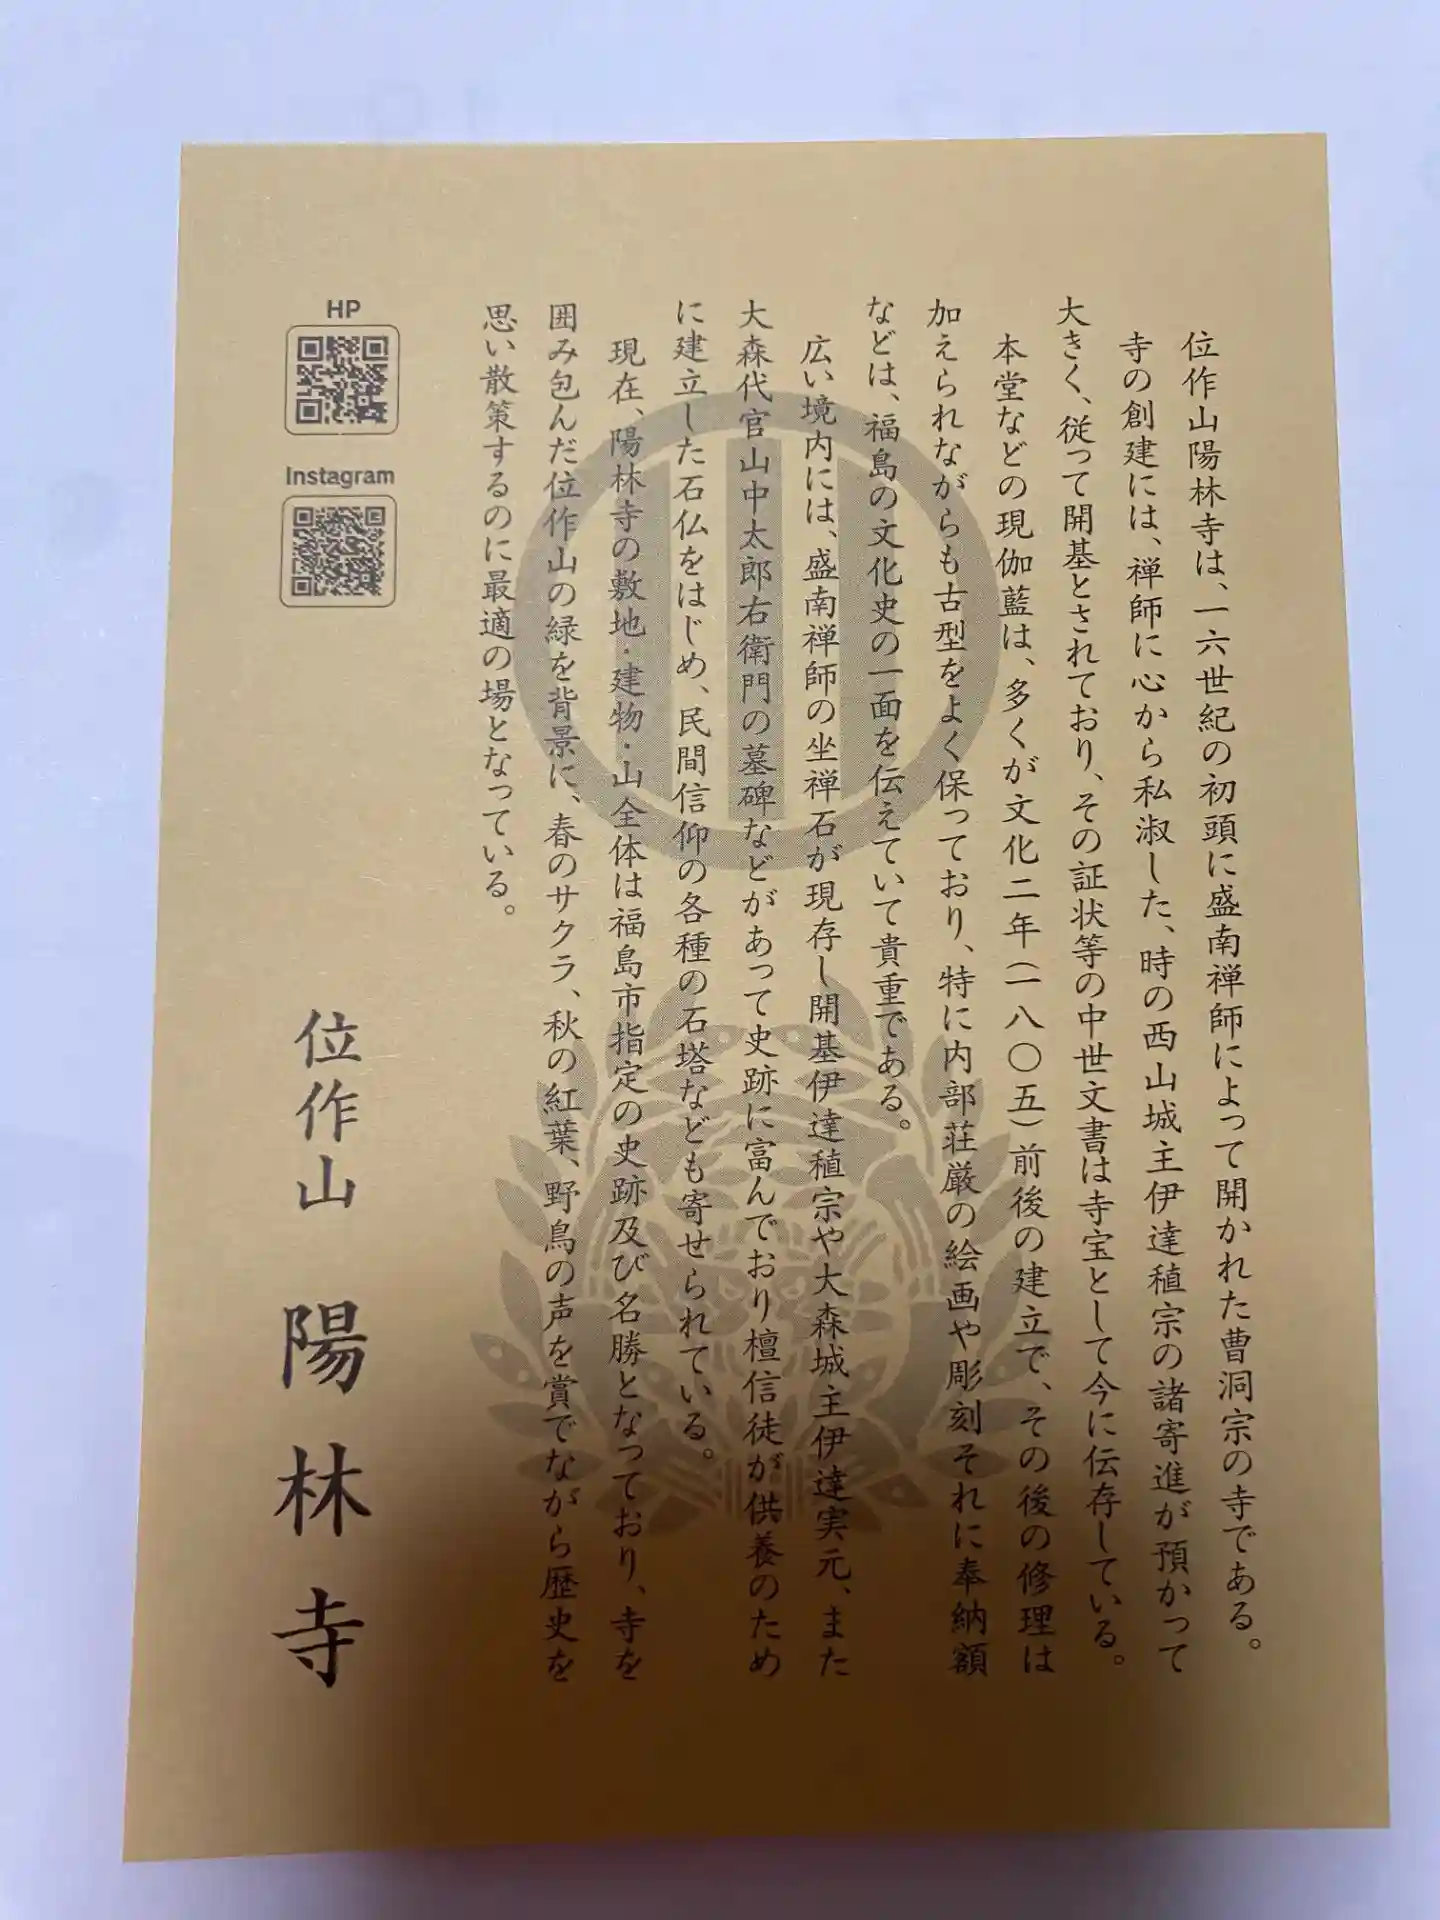 位作山陽林寺は、一六世紀の初頭に盛南禅師によって開かれた曹洞宗の寺である。
寺の創建には、禅師に心から私淑した、時の西山城主伊達稙宗の諸寄進が預かって
大きく、従って開基とされており、その証状等の中世文書は寺宝として今に伝存している。
本堂などの現伽藍は、多くが文化二年（一八〇五）前後の建立で、その後の修理は
加えられながらも古型をよく保っており、特に内部荘厳の絵画や彫刻それに奉納額
などは、福島の文化史の一面を伝えていて貴重である。
広い境内には、盛南禅師の坐禅石が現存し開基伊達稙宗や大森城主伊達実元、また
大森代官山中太郎右衛門の墓碑などがあって史跡に富んでおり檀信徒が供養のため
に建立した石仏をはじめ、民間信仰の各種の石塔なども寄せられている。
現在、陽林寺の敷地・建物・山全体は福島市指定の史跡及び名勝となっており、寺を
囲み包んだ位作山の緑を背景に、春のサクラ、秋の紅葉、野鳥の声を賞でながら歴史を
思い散策するのに最適の場となっている。
HP
Instagram
位作山 陽林寺